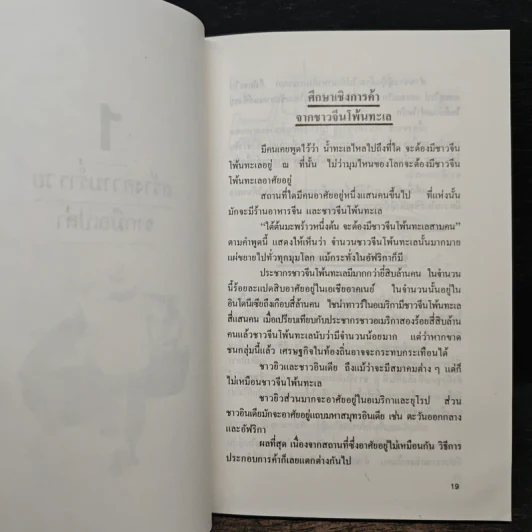 1
ศึกษาเชิงการค้า
จากชาวจีนโพ้นทะเล
มีคนเคยพูดไว้ว่า น้ำทะเลไหลไปถึงที่ใด จะต้องมีชาวจีน
โพ้นทะเลอยู่ ณ ที่นั้น ไม่ว่ามุมไหนของโลกจะต้องมีชาวจีน
โพ้นทะเลอาศัยอยู่
สถานที่ใดมีคนอาศัยอยู่หนึ่งแสนคนขึ้นไป ที่แห่งนั้น
มักจะมีร้านอาหารจีน และชาวจีนโพ้นทะเล
“ใต้ต้นมะพร้าวหนึ่งต้น จะต้องมีชาวจีนโพ้นทะเลสามคน”
ตามคำพูดนี้ แสดงให้เห็นว่า จำนวนชาวจีนโพ้นทะเลนั้นมากมาย
แผ่ขยายไปทั่วทุกมุมโลก แม้กระทั่งในอัฟริกาก็มี
ประชากรชาวจีนโพ้นทะเลมีมากกว่ายี่สิบล้านคน ในจำนวน
นี้ร้อยละแปดสิบอาศัยอยู่ในเอเซียอาคเนย์ ในจำนวนนั้นอยู่ใน
อินโดนีเซียถึงเกือบสี่ล้านคน ไชน่าทาวร์ในอเมริกามีชาวจีนโพ้นทะเล
สี่แสนคน เมื่อเปรียบเทียบกับประชากรชาวอเมริกาสองร้อยสี่สิบล้าน
คนแล้วชาวจีนโพ้นทะเลนับว่ามีจำนวนน้อยมาก แต่ว่าหากขาด
ชนกลุ่มนี้แล้ว เศรษฐกิจในท้องถิ่นอาจจะกระทบกระเทือนได้
ชาวยิวและชาวอินเดีย ถึงแม้ว่าจะมีสมาคมต่าง ๆ แต่ก็
ไม่เหมือนชาวจีนโพ้นทะเล
ชาวยิวส่วนมากจะอาศัยอยู่ในอเมริกาและยุโรป ส่วน
ชาวอินเดียมักจะอาศัยอยู่แถบมหาสมุทรอินเดีย เช่น ตะวันออกกลาง
และอัฟริกา
ผลที่สุด เนื่องจากสถานที่ซึ่งอาศัยอยู่ไม่เหมือนกัน วิธีการ
ประกอบการค้าก็เลยแตกต่างกันไป
19